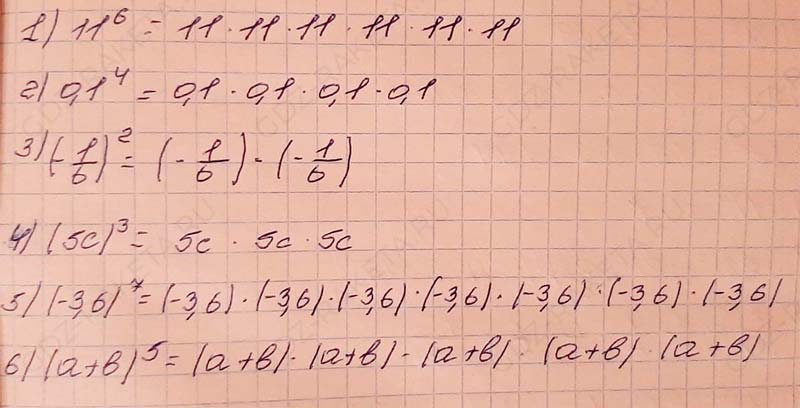 1) 11⁶ = 11 · 11 · 11 · 11 · 11 · 11
2) 0,1⁴ = 0,1 · 0,1 · 0,1 · 0,1
3) (-1/6)² = (-1/6) · (-1/6)
4) (5c)³ = 5c · 5c · 5c
5) (-3,6)⁷ = (-3,6) · (-3,6) · (-3,6) · (-3,6) · (-3,6) · (-3,6) · (-3,6)
6) (a+b)⁵ = (a+b) · (a+b) · (a+b) · (a+b) · (a+b)